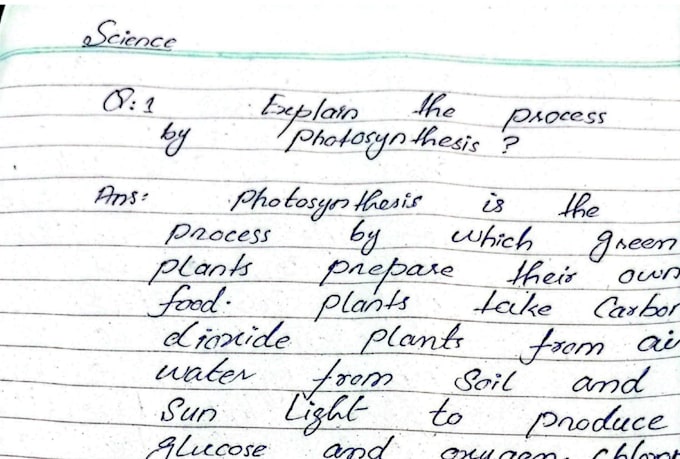 Science
Q:1 Explain the process
by photosynthesis ?
Ans: Photosynthesis is the
process by which green
plants prepare their own
food. plants take Carbon
dioxide plants from air
water from Soil and
Sun Light to produce
glucose and oxygen.